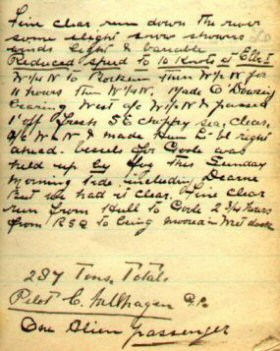 Fine clear run down the river
some slight snow showers
winds light & variable
Reduced speed to 10 Knots at Elbe I
W½N to Borkum then W½N for
11 hours then W½W. Made O Dowsing
bearing West o/c W½N & passed
1' off Fresh S.E. choppy sea, clear,
A/C W N & made Hum L bl right
ahead. Vessels for Goole was
held up by fog this Sunday
Morning tide including Dearne
but we had it clear. Fine clear
run from Hull to Goole 2 3/4 hours
from to being moored in West dock
287 Tons. Total
Pilot C. Hillhagen
One Alien passenger